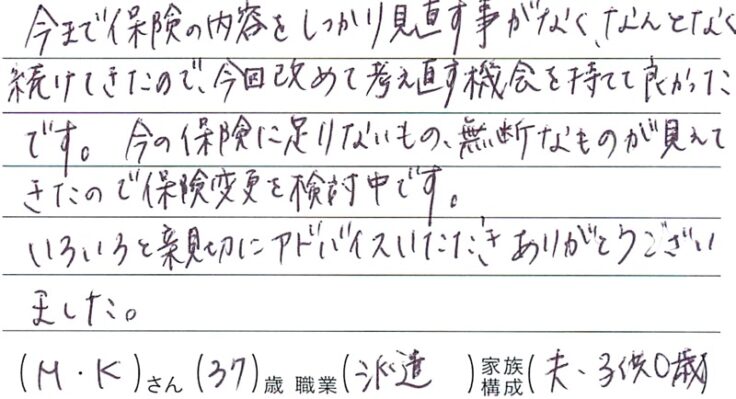 今まで保険の内容をしっかり見直す事がなく、なんとなく
続けてきたので、今回改めて考え直す機会を持てて良かった
です。今の保険に足りないもの、無断なものが見えて
きたので保険変更を検討中です。
いろいろと親切にアドバイスいただきありがとうござい
ました。
(M・K)さん (37)歳 職業(派遣)家族構成(夫、子供0歳)